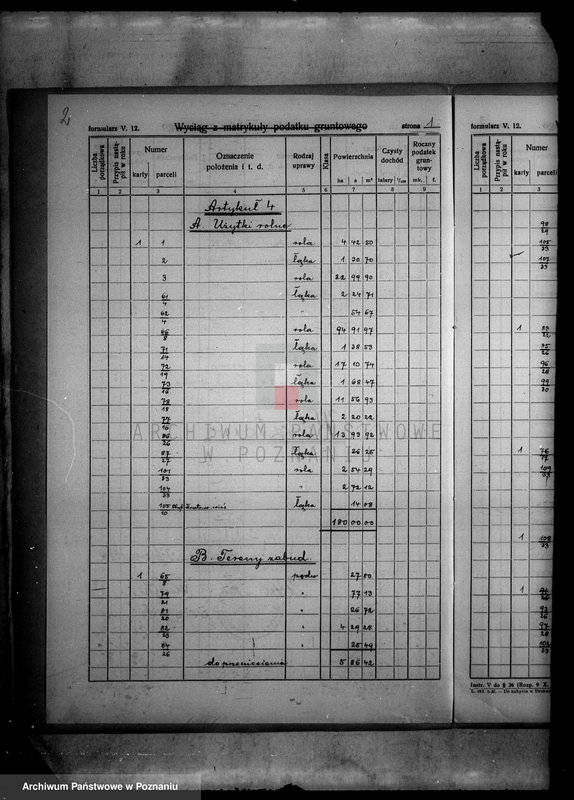 2
formularz V. 12.
Wyciąg z matrykuły podatku gruntowego
strona 1
Liczba porządkowa
Przypis nastąpił w roku
Numer
karty
parceli
Oznaczenie położenia i t. d.
Rodzaj uprawy
Klasa
Powierzchnia
ha a m²
Czysty dochód
talary
Roczny podatek gruntowy
mk. f.
1 2 3 4 5 6 7 8 9
Artykuł 4
A. Użytki rolne
1 1 rola 4 42 50
2 łąka 1 30 70
3 rola 22 99 90
61/4 łąka 2 24 71
62/4 " 54 67
66/8 rola 94 91 97
71/14 łąka 1 38 53
72/19 rola 17 10 74
73/18 łąka 1 68 47
78/18 rola 11 56 93
77/16 łąka 2 20 22
86/26 rola 13 93 92
87/27 łąka 26 25
101/33 rola 2 54 29
104/33 " 2 72 12
155/10 łąka 14 08
180 00 00
B. Tereny zabud.
1 65/8 podw 27 80
79/21 " 77 13
81/20 " 26 72
82/23 " 4 29 28
84/26 " 25 49
do przeniesienia 5 86 42
formularz V. 12.
Liczba porządkowa
Przypis nastąpił w roku
Numer
karty
parceli
1 2 3
98/29
105/33
107/33
1 23/22
25/26
96/28
99/30
1 76/17
109/33
1 108/33
1
93/26
97/28
102/33
Instr. V do § 36 (Rozp. 9 X.
ARCHIWUM PAŃSTWOWE
W POZNANIU
Archiwum Państwowe w Poznaniu